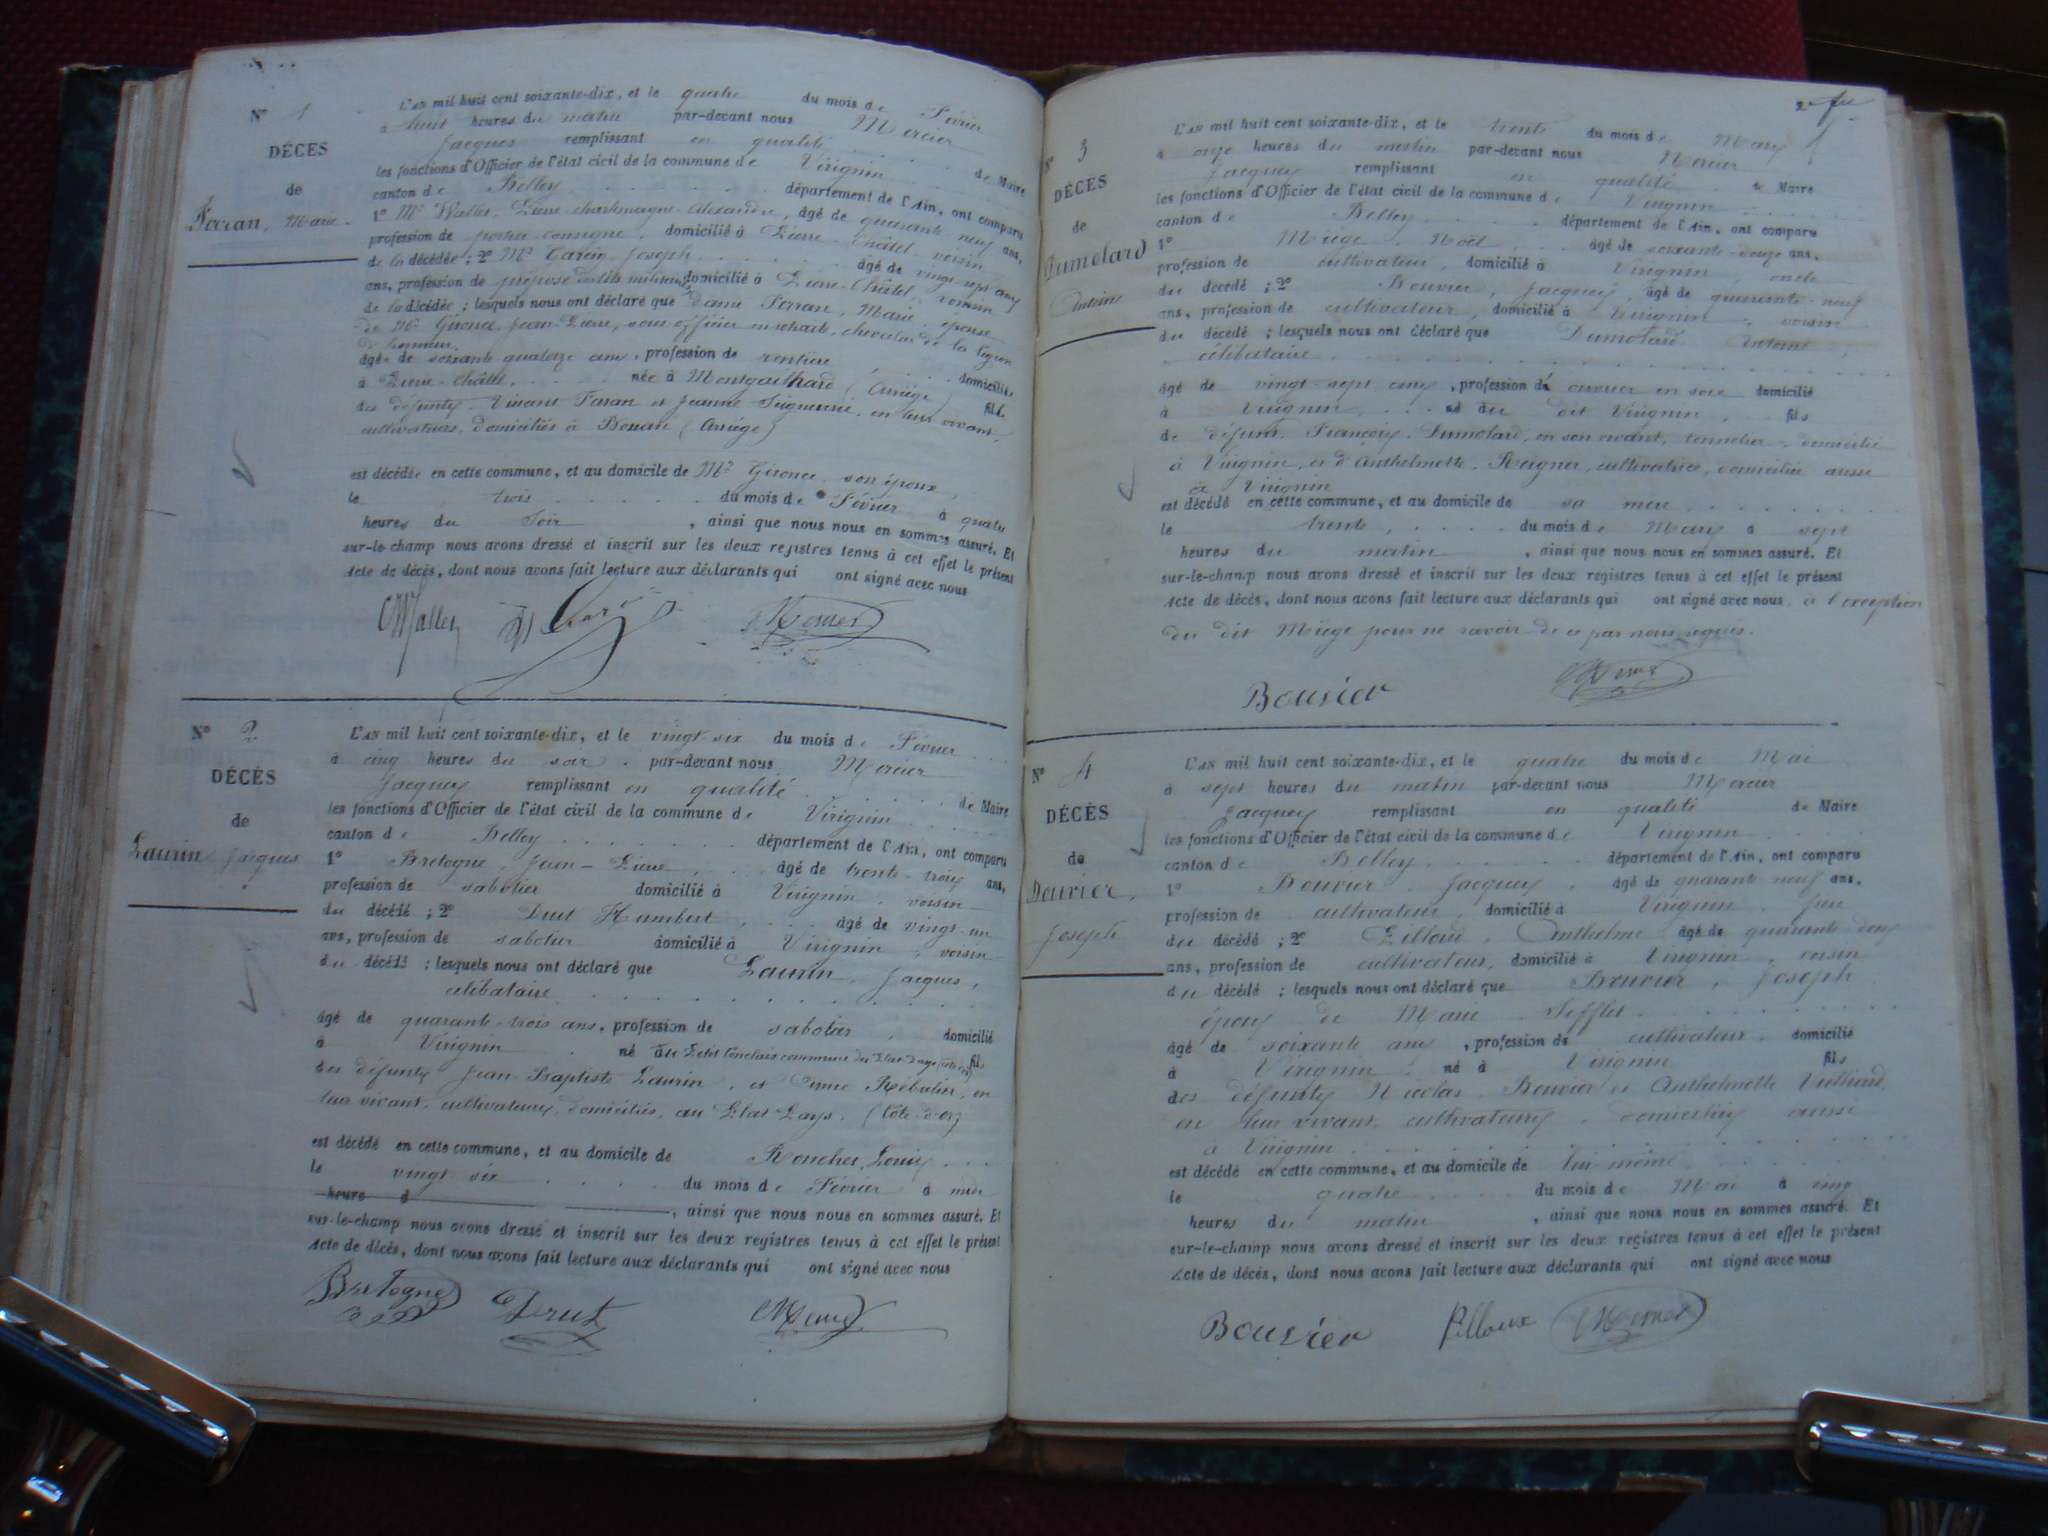 N° 1
DÉCES
de
Ferran, Marie
L'AN mil huit cent soixante-dix, et le quatre du mois de Février
à huit heures du matin par-devant nous Mercier
Jacques remplissant en qualité de Maire
les fonctions d'Officier de l'état civil de la commune de Virignin
canton de Belley département de l'Ain, ont comparu
1° Mr Wallet, Pierre charlemagne Alexandre, âgé de quarante neuf ans,
profession de portier consigne, domicilié à Pierre-Châtel, voisin
de la décédée ; 2° Mr Joseph âgé de vingt-sept ans
ans, profession de préposé des lits militaires domicilié à Pierre-Châtel, voisin
de la décédée ; lesquels nous ont déclaré que dame Ferran, Marie, épouse
de Mr Gironce, Jean-Pierre, sous officier en retraite, chevalier de la légion
d'honneur.
âgée de soixante quatorze ans, profession de rentière domiciliée
à Pierre-Châtel, née à Montgailhard (Ariège) fille
des défunts Vincent Ferran et Jeanne en leur vivant,
cultivateurs, domiciliés à (Ariège)
est décédée en cette commune, et au domicile de Mr Gironce, son époux,
le trois du mois de Février à quatre
heures du soir, ainsi que nous nous en sommes assuré. Et
sur-le-champ nous avons dressé et inscrit sur les deux registres tenus à cet effet le présent
Acte de décès, dont nous avons fait lecture aux déclarants qui ont signé avec nous
Wallet Mercier
N° 2
DÉCÈS
de
Laurin Jacques
L'AN mil huit cent soixante-dix, et le vingt-six du mois de Février
à cinq heures du soir par-devant nous Mercier
Jacques remplissant en qualité de Maire
les fonctions d'Officier de l'état civil de la commune de Virignin
canton de Belley département de l'Ain, ont comparu
1° Bretogne Jean-Pierre âgé de trente-trois ans,
profession de sabotier domicilié à Virignin, voisin
du décédé ; 2° Drut Humbert, âgé de vingt-un
ans, profession de sabotier domicilié à Virignin, voisin
du décédé ; lesquels nous ont déclaré que Laurin, Jacques,
célibataire
âgé de quarante-trois ans, profession de sabotier, domicilié
à Virignin né au Petit commune du fils
des défunts Jean-Baptiste Laurin, et Anne Rébulin, en
leur vivant, cultivateurs, domiciliés, au Plat Pays. (Côte-d'or)
est décédé en cette commune, et au domicile de Louis
le vingt six du mois de Février à midi
heure d , ainsi que nous nous en sommes assuré. Et
sur-le-champ nous avons dressé et inscrit sur les deux registres tenus à cet effet le présent
Acte de décès, dont nous avons fait lecture aux déclarants qui ont signé avec nous
Bretogne Drut Mercier
N° 3
DÉCÈS
de
Dumolard
Antoine
L'AN mil huit cent soixante-dix, et le trente du mois de Mars
à onze heures du matin par-devant nous Mercier
Jacques remplissant en qualité de Maire
les fonctions d'Officier de l'état civil de la commune de Virignin
canton de Belley département de l'Ain, ont comparu
1° Miège, Noël âgé de soixante-douze ans,
profession de cultivateur, domicilié à Virignin, oncle
du décédé ; 2° Bouvier, Jacques, âgé de quarante-neuf
ans, profession de cultivateur, domicilié à Virignin, voisin
du décédé ; lesquels nous ont déclaré que Dumolard Antoine,
célibataire
âgé de vingt-sept ans, profession d'ouvrier en soie domicilié
à Virignin, né au dit Virignin, fils
de défunt François Dumolard, en son vivant, tonnelier, domicilié
à Virignin, et d'Anthelmette Reignier, cultivatrice, domiciliée aussi
à Virignin
est décédé en cette commune, et au domicile de sa mère
le trente, du mois de Mars à sept
heures du matin, ainsi que nous nous en sommes assuré. Et
sur-le-champ nous avons dressé et inscrit sur les deux registres tenus à cet effet le présent
Acte de décès, dont nous avons fait lecture aux déclarants qui ont signé avec nous, à l'exception
du dit Miège pour ne savoir de ce par nous requis.
Bouvier Mercier
N° 4
DÉCÈS
de
Bouvier,
Joseph
L'AN mil huit cent soixante-dix, et le quatre du mois de Mai
à sept heures du matin par-devant nous Mercier
Jacques remplissant en qualité de Maire
les fonctions d'Officier de l'état civil de la commune de Virignin
canton de Belley département de l'Ain, ont comparu
1° Bouvier Jacques, âgé de quarante-neuf ans,
profession de cultivateur, domicilié à Virignin,
du décédé ; 2° Anthelme âgé de quarante-deux
ans, profession de cultivateur, domicilié à Virignin, voisin
du décédé ; lesquels nous ont déclaré que Bouvier, Joseph
époux de Marie
âgé de soixante ans, profession de cultivateur domicilié
à Virignin né à Virignin fils
des défunts Nicolas Bouvier et Anthelmette
en leur vivant, cultivateurs, domiciliés aussi
à Virignin
est décédé en cette commune, et au domicile de lui-même
le quatre du mois de Mai à cinq
heures du matin, ainsi que nous nous en sommes assuré. Et
sur-le-champ nous avons dressé et inscrit sur les deux registres tenus à cet effet le présent
Acte de décès, dont nous avons fait lecture aux déclarants qui ont signé avec nous
Bouvier Pilloux Mercier